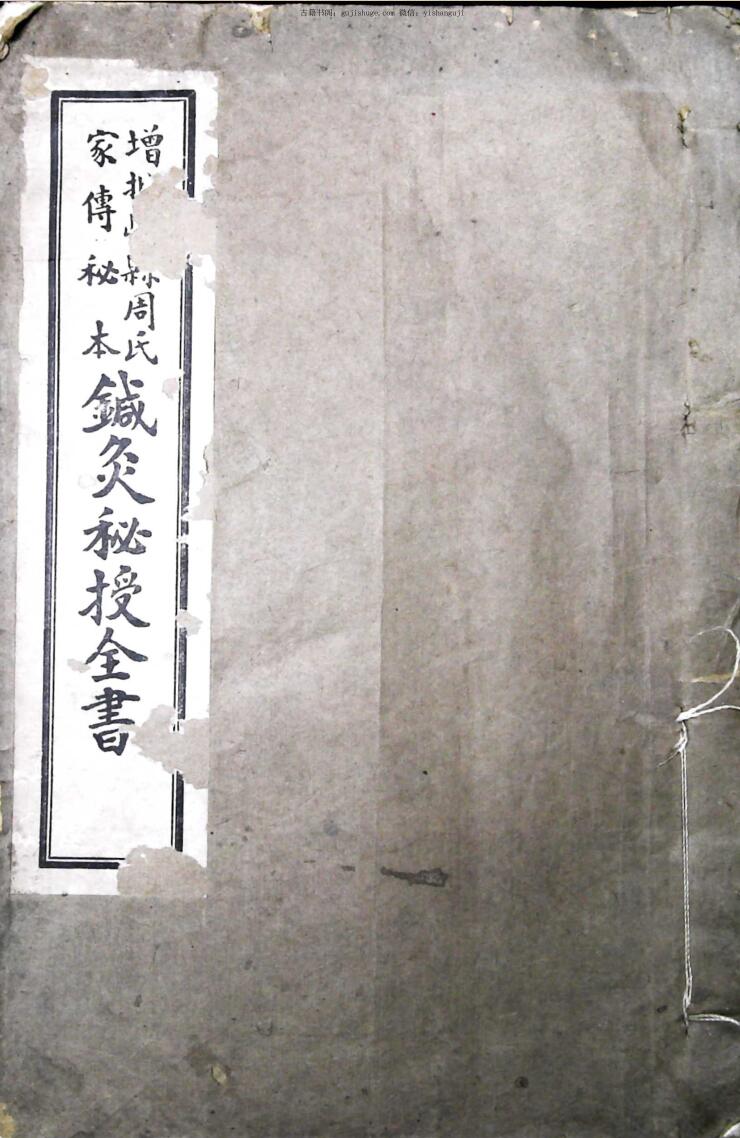 古籍书阁：gujishuge.com 微信：yishanguji
增 周氏
家傳秘本
鍼灸秘授全書